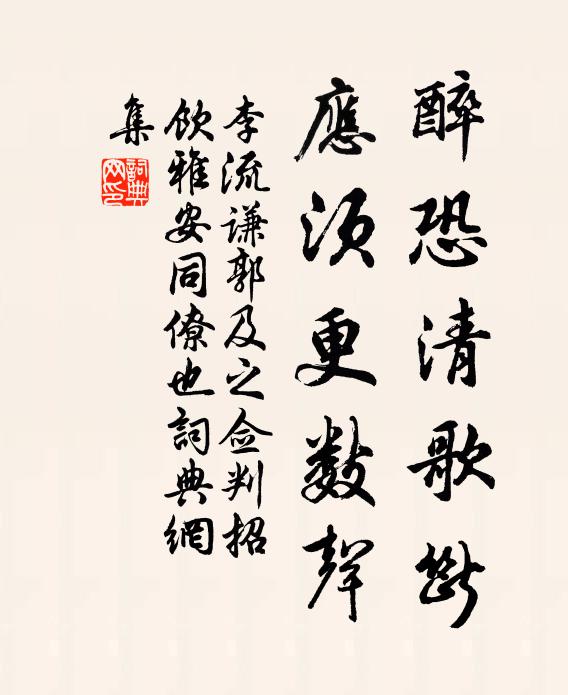 醉恐清歌斷
應須更數聲
李流謙郭及之僉判招
飲雅安同僚也詞典網
集
詞典
网印